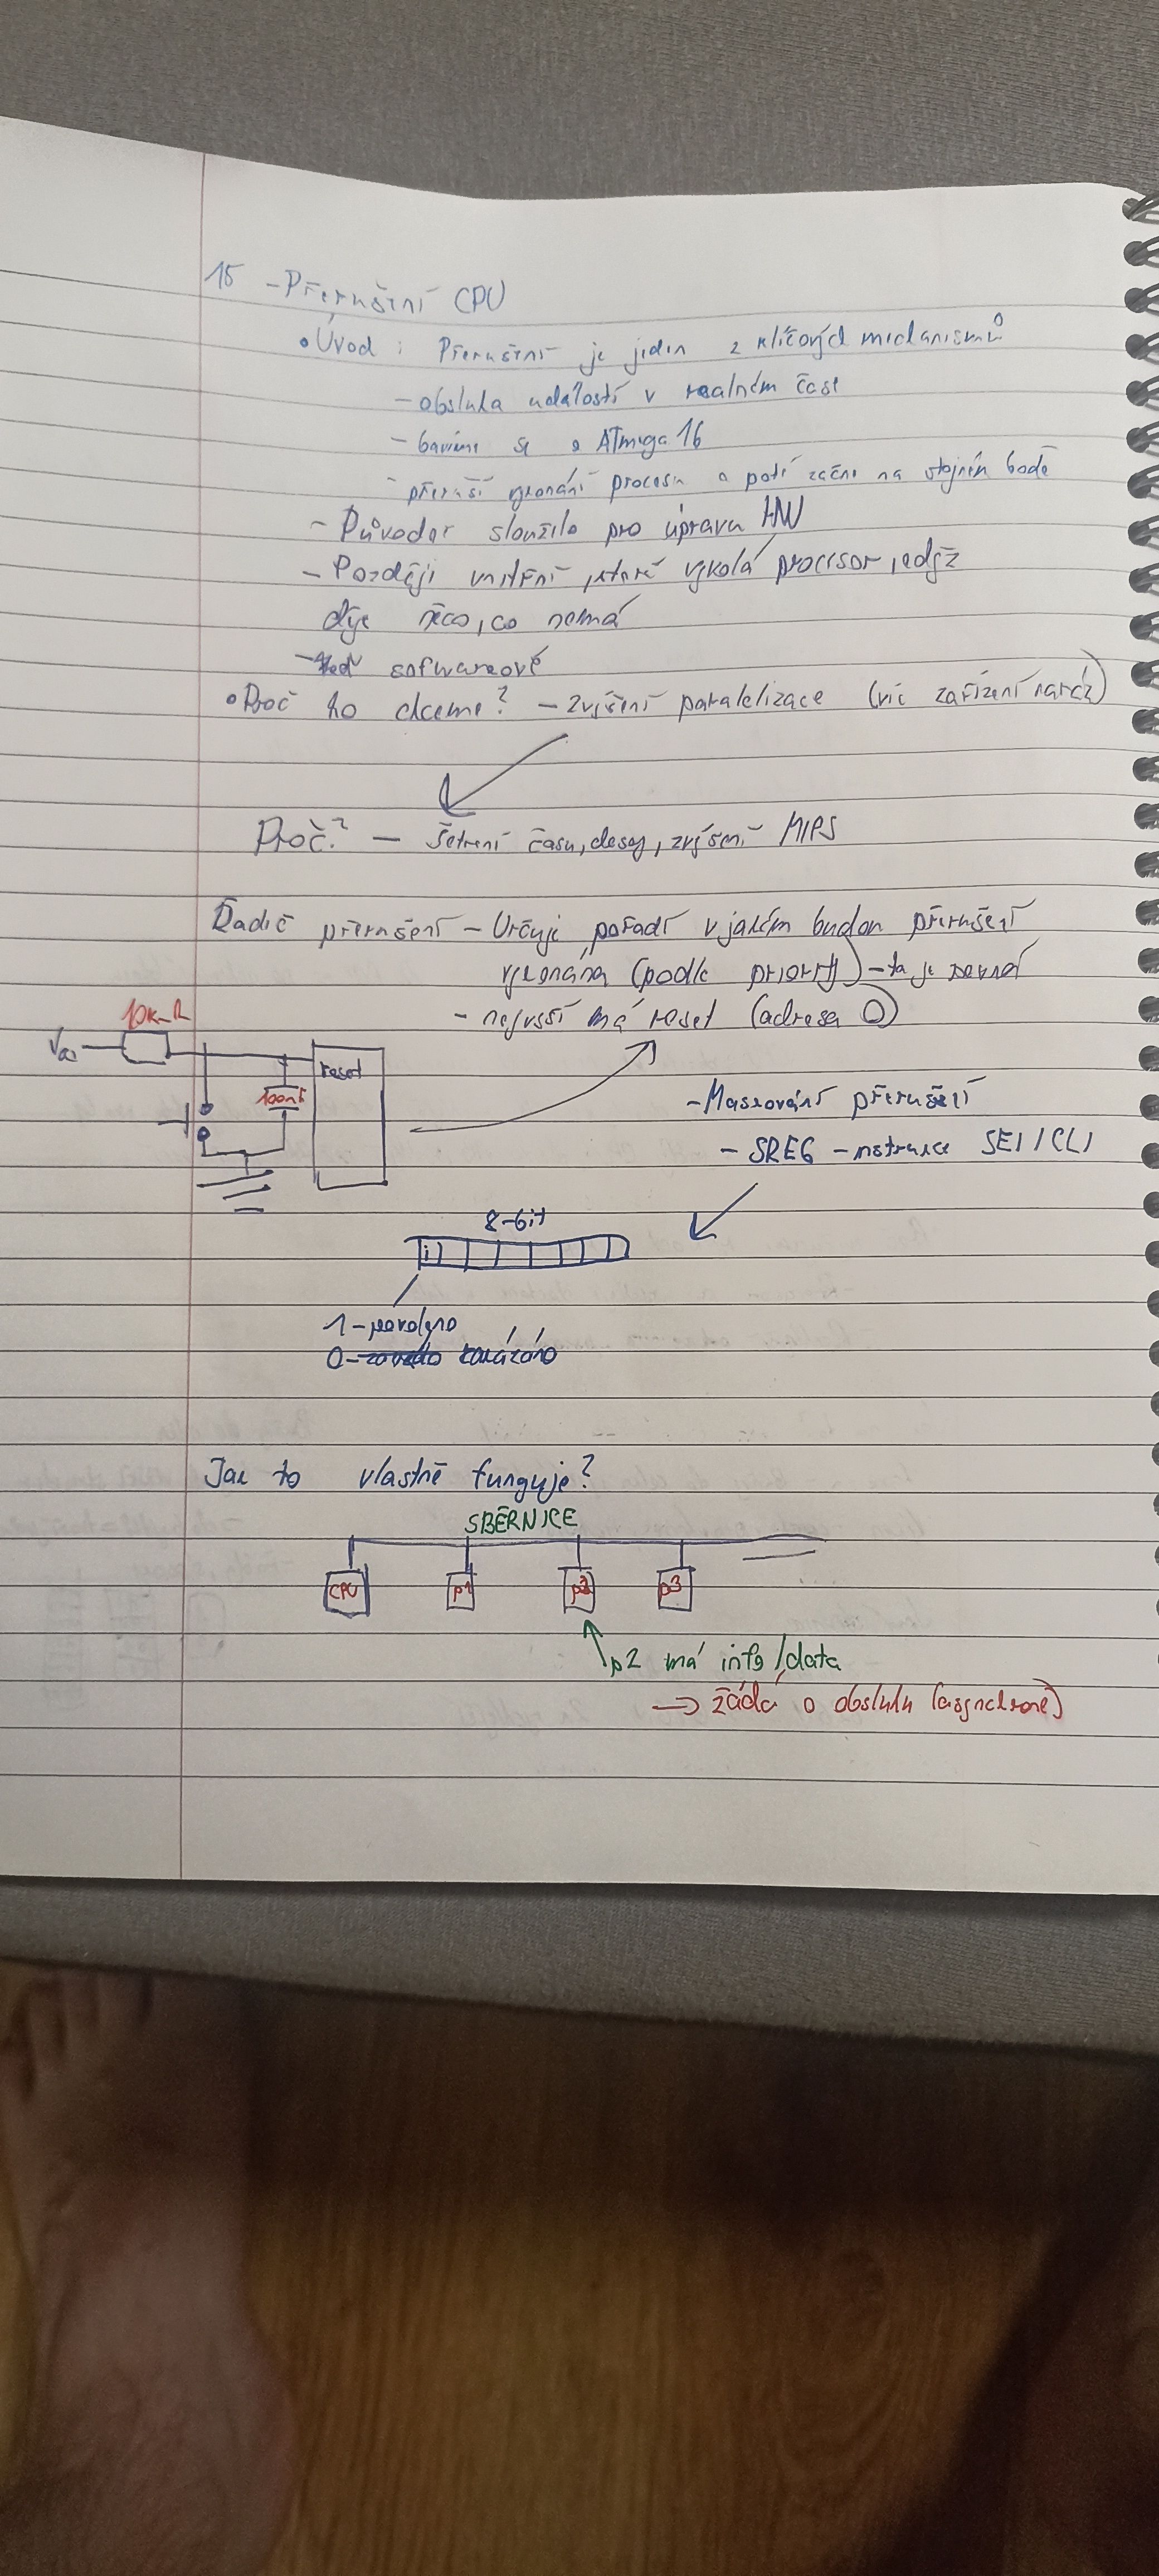 15 - Přerušení CPU
• Úvod : Přerušení je jeden z klíčových mechanismů
- obsluha událostí v realném čase
- bavíme se o ATmega 16
- přeruší vykonání procesu a poté začne na stejném bodě
- Původně sloužilo pro úpravu HW
- Později vnitřní, které vyvolá procesor, když
děje něco, co nemá
- teď softwareové
• Proč ho chceme? - Zvýšení paralelizace (víc zařízení naráz)
Proč? - šetření času, desey, zvýšení MIPS
Řadič přerušení - Určuje pořadí v jakém budou přerušení
vykonána (podle priority) - ta je pevná
- nejvyšší má reset (adresa 0)
10k Ω
Vcc
reset
100nF
- Maskování přerušení
- SREG - instrukce SEI / CLI
8-bit
i
1 - povoleno
0 - zakázáno
Jak to vlastně funguje?
SBĚRNICE
CPU p1 p2 p3
p2 má info/data
→ žádá o obsluhu (asynchroně)